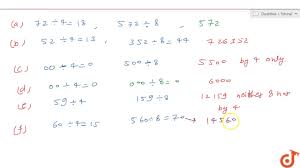 (a) 72÷4=18, 572÷8 572
(b) 52÷4=13, 352÷8=44 726352
(c) 00÷4 500÷8 5500 by 4 only
(d) 00÷4 000÷8=0 6000
(e) 59÷4 159÷8 12159 neither 8 nor
by 4
(f) 60÷4=15 560÷8=70→ 14560